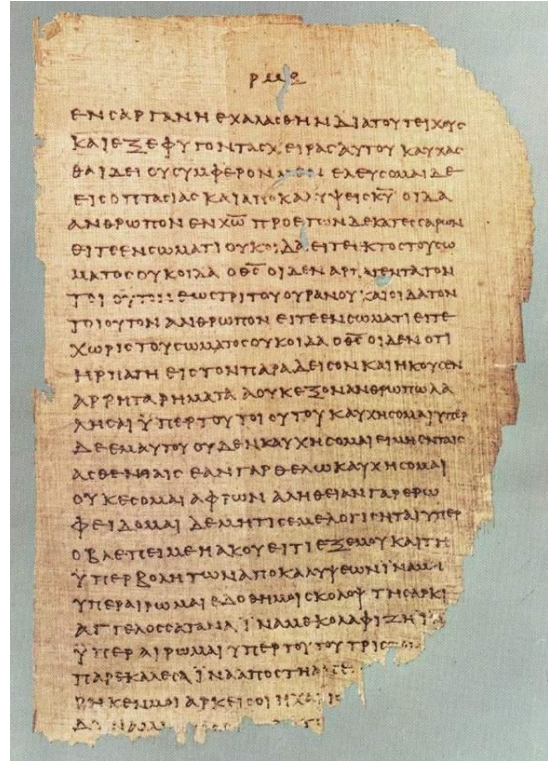 ΡΜΘ
ΕΝ ΣΑΡΓΑΝΗ ΕΧΑΛΑΣΘΗΝ ΔΙΑ ΤΟΥ ΤΕΙΧΟΥΣ
ΚΑΙ ΕΞΕΦΥΓΟΝ ΤΑΣ ΧΕΙΡΑΣ ΑΥΤΟΥ ΚΑΥΧΑΣ
ΘΑΙ ΔΕΙ ΟΥ ΣΥΜΦΕΡΟΝ ΕΛΕΥΣΟΜΑΙ ΔΕ
ΕΙΣ ΟΠΤΑΣΙΑΣ ΚΑΙ ΑΠΟΚΑΛΥΨΕΙΣ Κ̅Υ̅ ΟΙΔΑ
ΑΝΘΡΩΠΟΝ ΕΝ Χ̅Ω̅ ΠΡΟ ΕΤΩΝ ΔΕΚΑΤΕΣΣΑΡΩΝ
ΕΙΤΕ ΕΝ ΣΩΜΑΤΙ ΟΥΚ ΟΙΔΑ ΕΙΤΕ ΕΚΤΟΣ ΤΟΥ ΣΩ
ΜΑΤΟΣ ΟΥΚ ΟΙΔΑ Ο Θ̅Σ̅ ΟΙΔΕΝ ΑΡΠΑΓΕΝΤΑ ΤΟΝ
ΤΟΙΟΥΤΟΝ ΕΩΣ ΤΡΙΤΟΥ ΟΥΡΑΝΟΥ ΚΑΙ ΟΙΔΑ ΤΟΝ
ΤΟΙΟΥΤΟΝ ΑΝΘΡΩΠΟΝ ΕΙΤΕ ΕΝ ΣΩΜΑΤΙ ΕΙΤΕ
ΧΩΡΙΣ ΤΟΥ ΣΩΜΑΤΟΣ ΟΥΚ ΟΙΔΑ Ο Θ̅Σ̅ ΟΙΔΕΝ ΟΤΙ
ΗΡΠΑΓΗ ΕΙΣ ΤΟΝ ΠΑΡΑΔΕΙΣΟΝ ΚΑΙ ΗΚΟΥΣΕΝ
ΑΡΡΗΤΑ ΡΗΜΑΤΑ Α ΟΥΚ ΕΞΟΝ ΑΝΘΡΩΠΩ ΛΑ
ΛΗΣΑΙ ΫΠΕΡ ΤΟΥ ΤΟΙΟΥΤΟΥ ΚΑΥΧΗΣΟΜΑΙ ΥΠΕΡ
ΔΕ ΕΜΑΥΤΟΥ ΟΥΔΕΝ ΚΑΥΧΗΣΟΜΑΙ ΕΙ ΜΗ ΕΝ ΤΑΙΣ
ΑΣΘΕΝΕΙΑΙΣ ΕΑΝ ΓΑΡ ΘΕΛΩ ΚΑΥΧΗΣΟΜΑΙ
ΟΥΚ ΕΣΟΜΑΙ ΑΦΡΩΝ ΑΛΗΘΕΙΑΝ ΓΑΡ ΕΡΩ
ΦΕΙΔΟΜΑΙ ΔΕ ΜΗ ΤΙΣ ΕΜΕ ΛΟΓΙΣΗΤΑΙ ΥΠΕΡ
Ο ΒΛΕΠΕΙ ΜΕ Η ΑΚΟΥΕΙ ΤΙ ΕΞ ΕΜΟΥ ΚΑΙ ΤΗ
ΫΠΕΡΒΟΛΗ ΤΩΝ ΑΠΟΚΑΛΥΨΕΩΝ ΪΝΑ ΜΗ
ΥΠΕΡΑΙΡΩΜΑΙ ΕΔΟΘΗ ΜΟΙ ΣΚΟΛΟΨ ΤΗ ΣΑΡΚΙ
ΑΓΓΕΛΟΣ ΣΑΤΑΝΑ ΪΝΑ ΜΕ ΚΟΛΑΦΙΖΗ Ϊ
ΫΠΕΡΑΙΡΩΜΑΙ ΥΠΕΡ ΤΟΥΤΟΥ ΤΡΙΣ
ΠΑΡΕΚΑΛΕΣΑ ΪΝΑ ΑΠΟΣΤΗ
ΡΗΚΕΝ ΜΟΙ ΑΡΚΕΙ ΣΟΙ Η ΧΑΡΙΣ